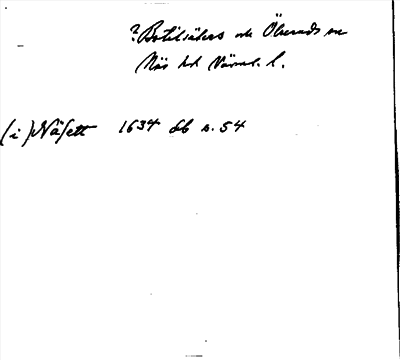 ? Botilsäters och Ölseruds sn
Näs hd Värml. l.
(i) Näsett 1634 Jb s. 54